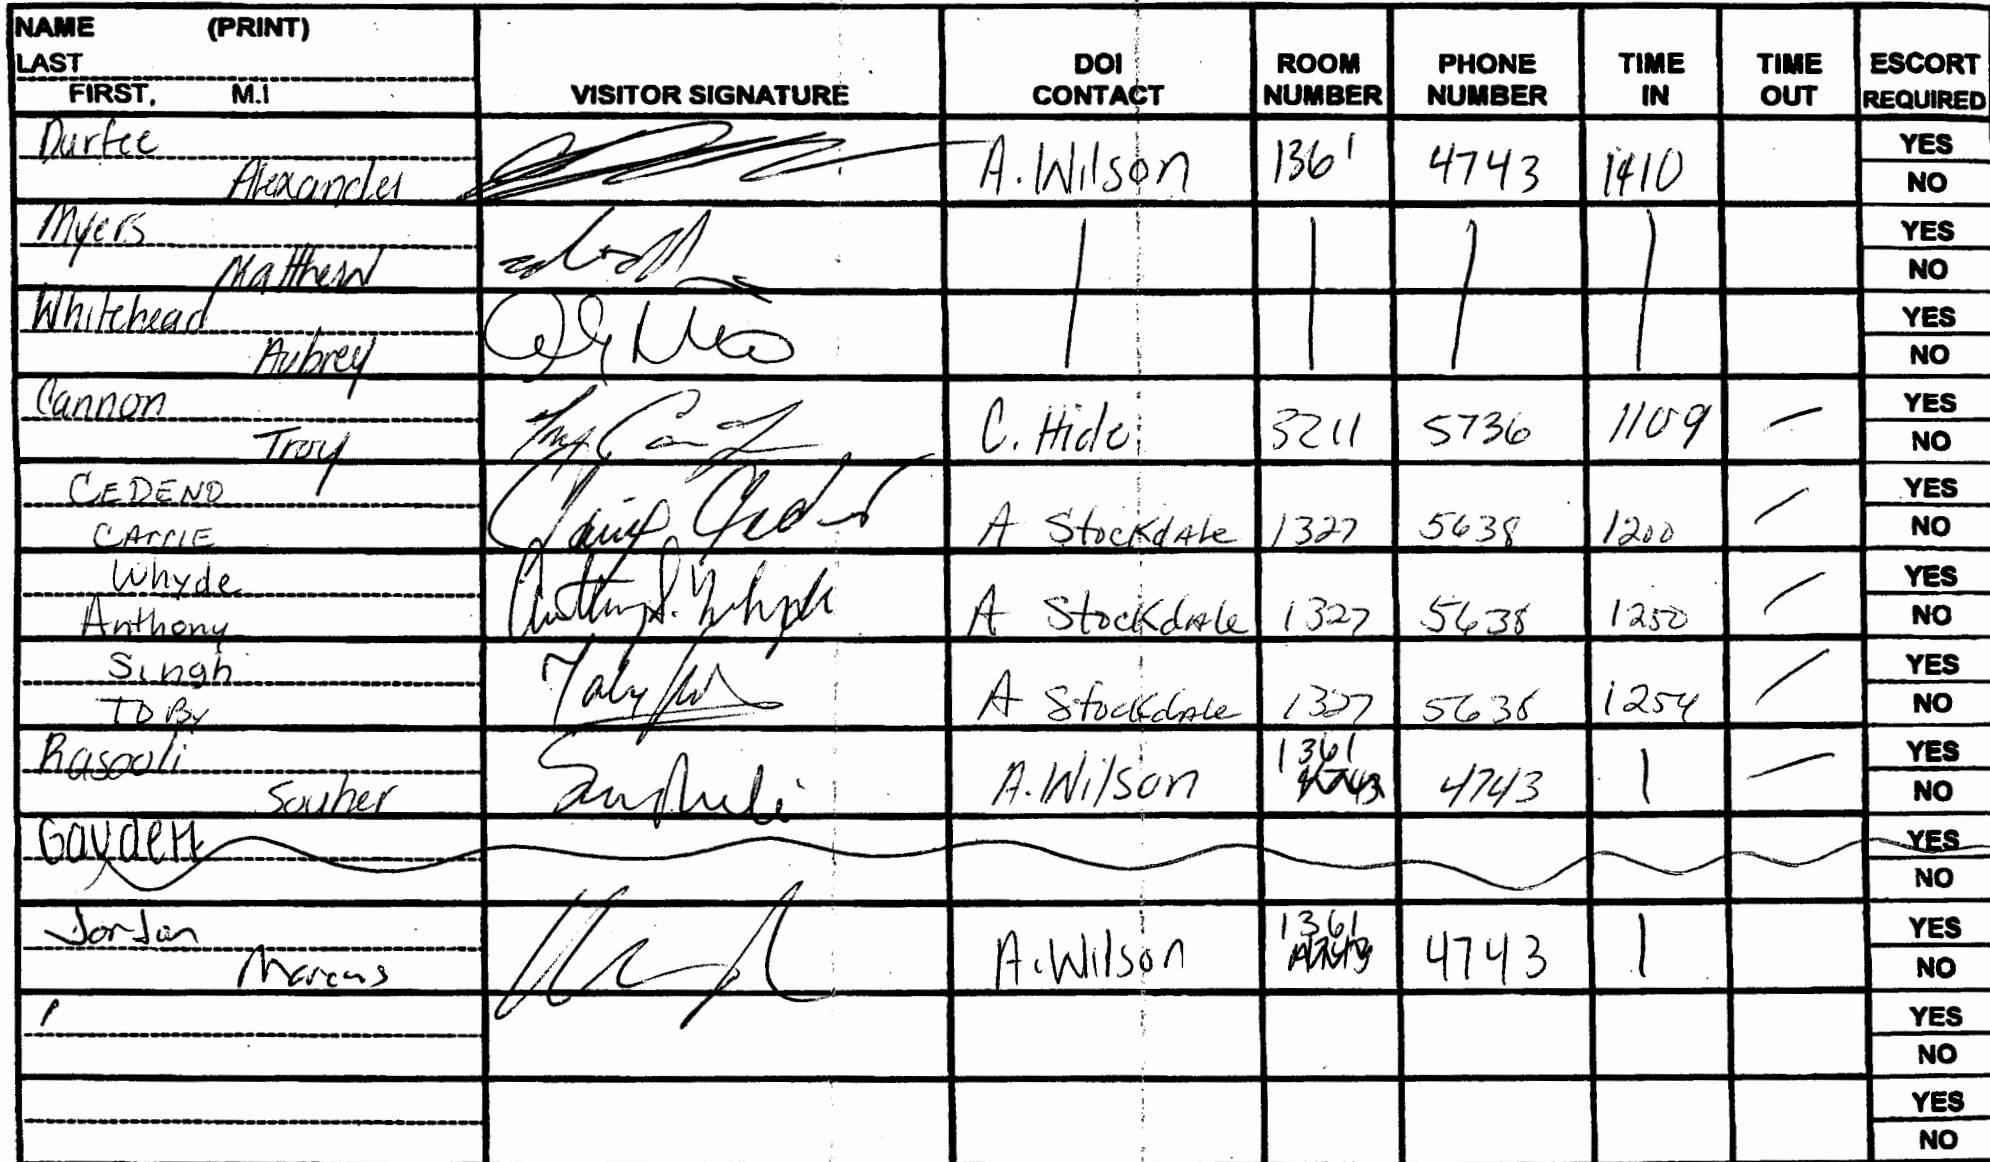 NAME (PRINT)
LAST
FIRST, M.I
VISITOR SIGNATURE
DOI CONTACT
ROOM NUMBER
PHONE NUMBER
TIME IN
TIME OUT
ESCORT REQUIRED
Durfee
Alexander A. Wilson 1361 4743 1410 YES NO
Myers
Matthew | | | | YES NO
Whitehead
Aubrey | | | | YES NO
Cannon
Troy C. Hide 3211 5736 1109 — YES NO
CEDENO
CARRIE A Stockdale 1327 5638 1200 / YES NO
Whyde
Anthony Anthony S. Whyde A Stockdale 1327 5638 1250 / YES NO
Singh
TOBY Toby A Stockdale 1327 5638 1254 / YES NO
Rasooli 1361
Souher A. Wilson 4743 4743 | — YES NO
YES NO
Jordan 1361
Marcus A. Wilson 4743 4743 | YES NO
YES NO
YES NO